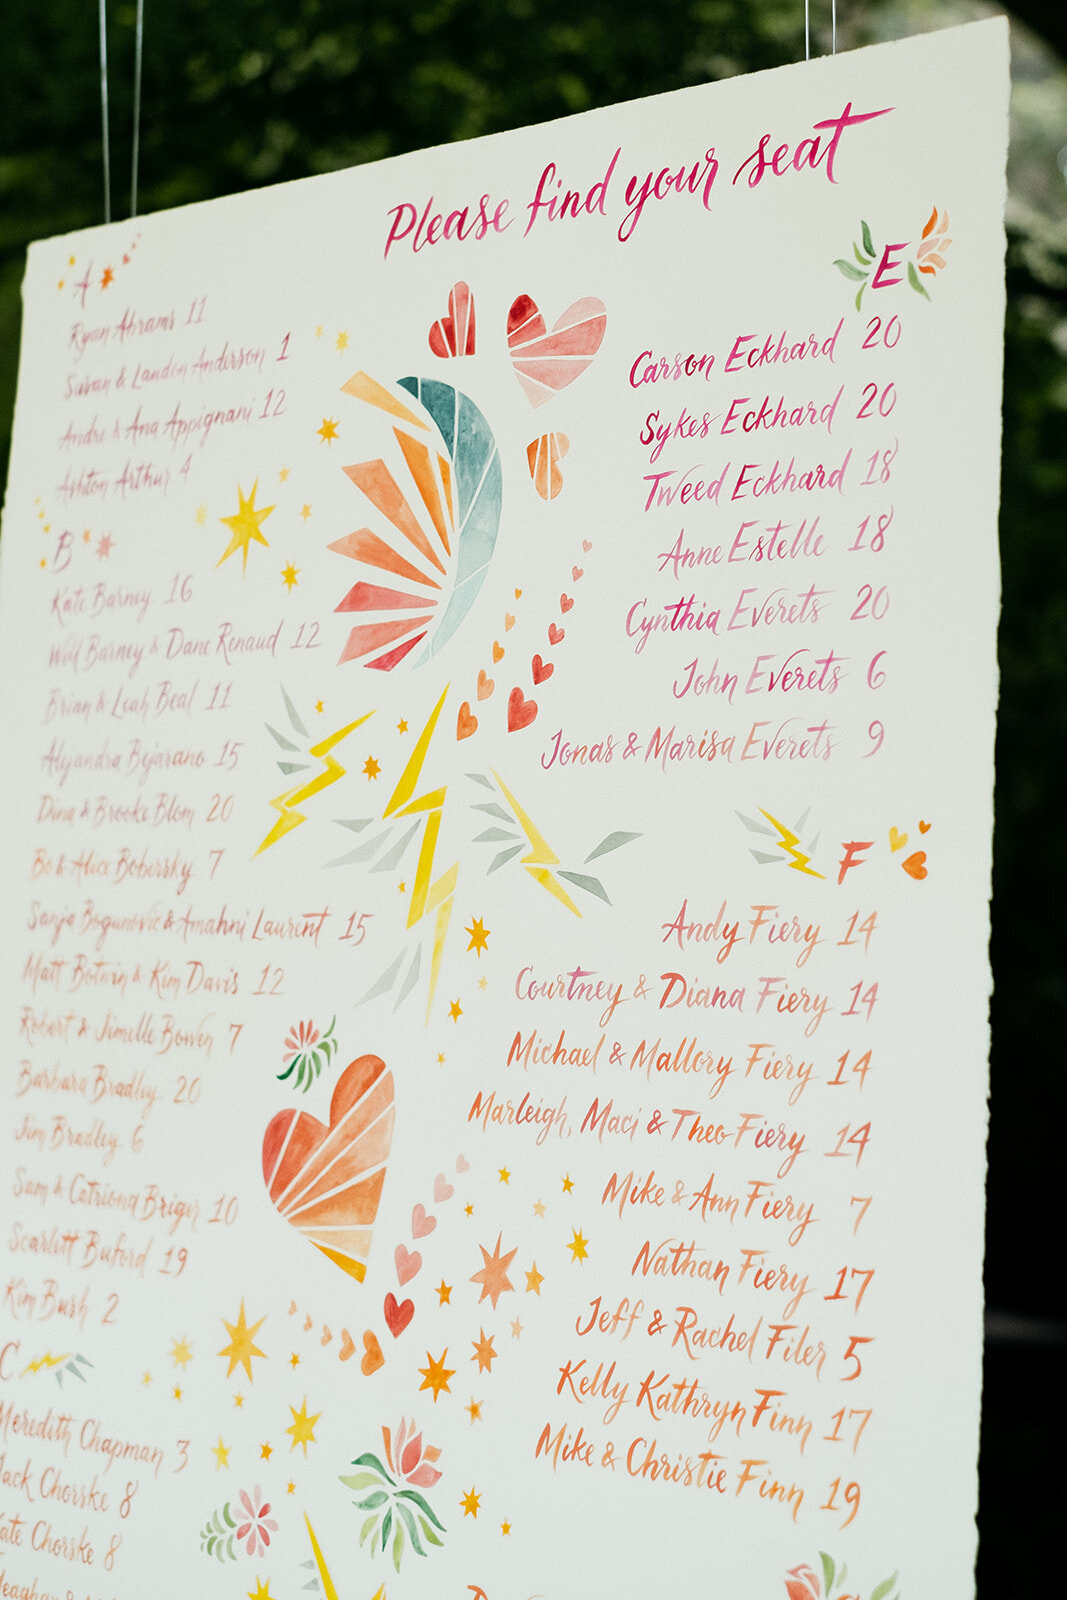 Please find your seat
A
Ryan Abrams 11
Susan & Landon Anderson 1
Andre & Ana Appignani 12
Ashton Arthur 4
B
Kate Barney 16
Will Barney & Dane Renaud 12
Brian & Leah Beal 11
Alejandra Bejarano 15
Dina & Brooke Blom 20
Bo & Alice Bobirsky 7
Sanja Bogunovic & Amahni Laurent 15
Matt Botwin & Kim Davis 12
Robert & Jimelle Bowen 7
Barbara Bradley 20
Jim Bradley 6
Sam & Catriona Briger 10
Scarlett Buford 19
Kim Bush 2
C
Meredith Chapman 3
Jack Chorske 8
Kate Chorske 8
E
Carson Eckhard 20
Sykes Eckhard 20
Tweed Eckhard 18
Anne Estelle 18
Cynthia Everets 20
John Everets 6
Jonas & Marisa Everets 9
F
Andy Fiery 14
Courtney & Diana Fiery 14
Michael & Mallory Fiery 14
Marleigh, Maci & Theo Fiery 14
Mike & Ann Fiery 7
Nathan Fiery 17
Jeff & Rachel Filer 5
Kelly Kathryn Finn 17
Mike & Christie Finn 19